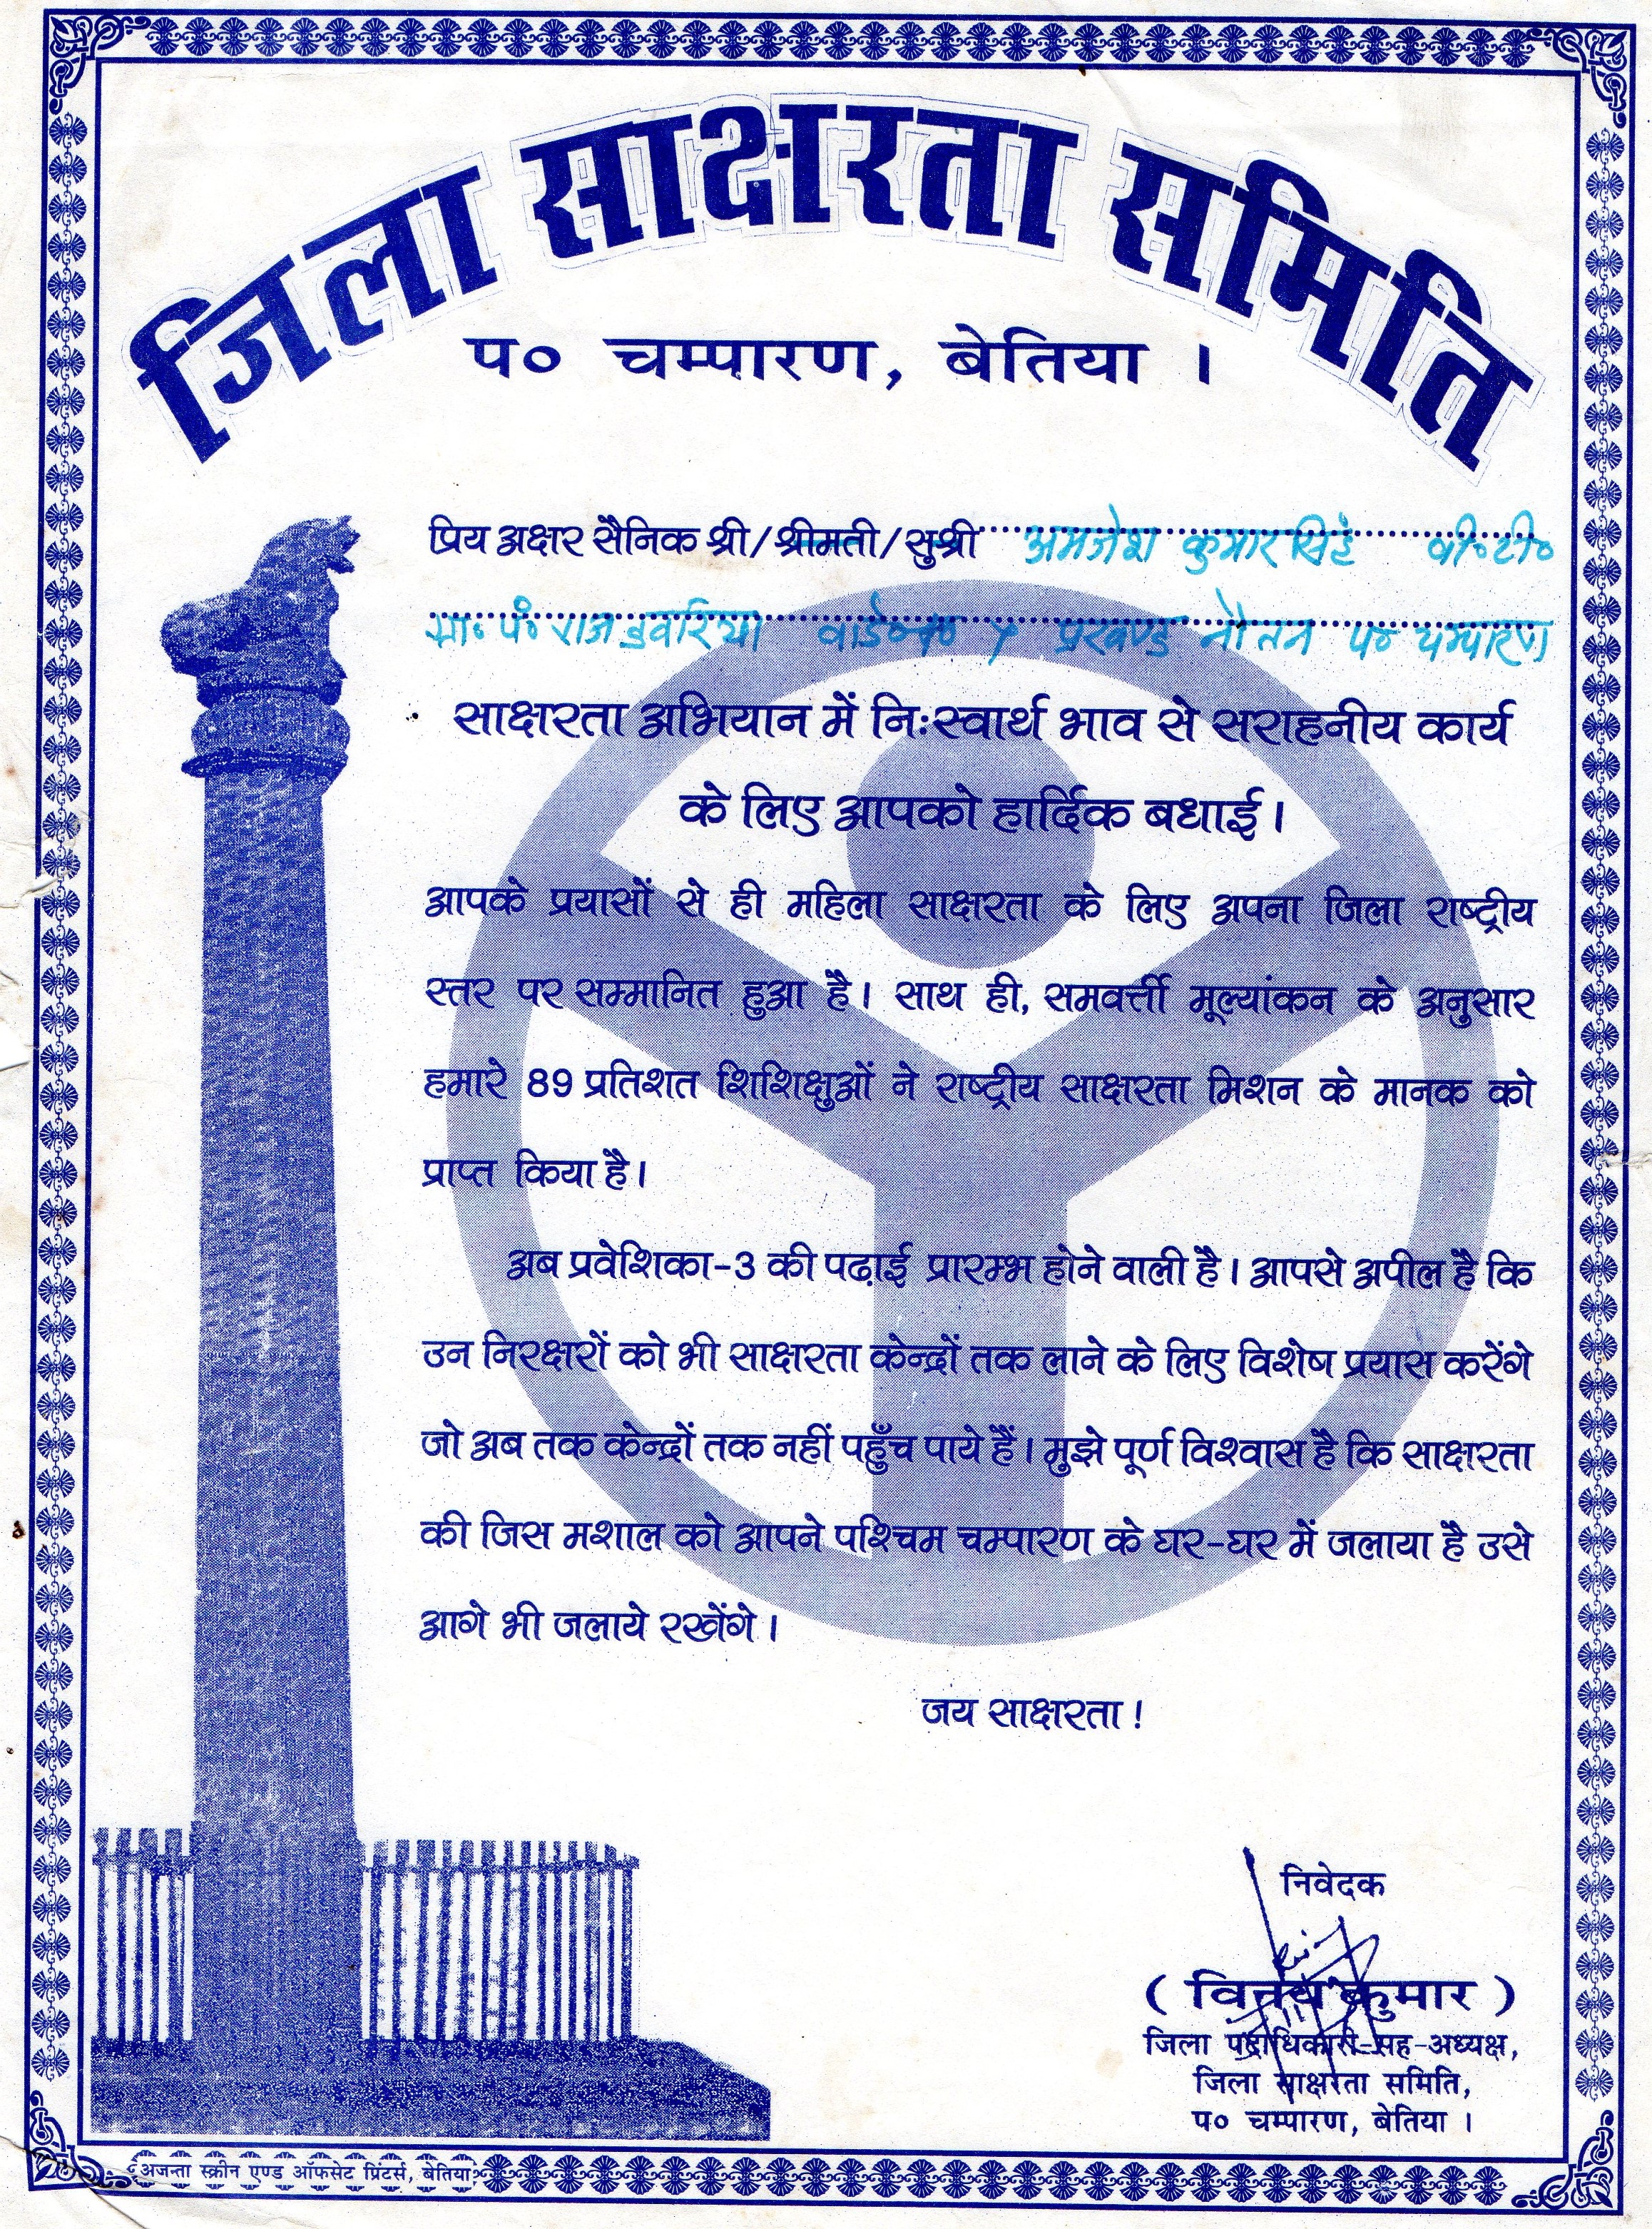 जिला साक्षरता समिति
प० चम्पारण, बेतिया ।
प्रिय अक्षर सैनिक श्री/श्रीमती/सुश्री अमजेश कुमार सिंह वी०टी०
ग्रा० पं० राजडवरिया वार्ड नं० प्रखण्ड नौतन प० चम्पारण
साक्षरता अभियान में निःस्वार्थ भाव से सराहनीय कार्य
के लिए आपको हार्दिक बधाई।
आपके प्रयासों से ही महिला साक्षरता के लिए अपना जिला राष्ट्रीय
स्तर पर सम्मानित हुआ है। साथ ही, समवर्त्ती मूल्यांकन के अनुसार
हमारे 89 प्रतिशत शिशिक्षुओं ने राष्ट्रीय साक्षरता मिशन के मानक को
प्राप्त किया है।
अब प्रवेशिका-3 की पढाई प्रारम्भ होने वाली है। आपसे अपील है कि
उन निरक्षरों को भी साक्षरता केन्द्रों तक लाने के लिए विशेष प्रयास करेंगे
जो अब तक केन्द्रों तक नहीं पहुँच पाये हैं। मुझे पूर्ण विश्वास है कि साक्षरता
की जिस मशाल को आपने पश्चिम चम्पारण के घर-घर में जलाया है उसे
आगे भी जलाये रखेंगे।
जय साक्षरता!
निवेदक
( विनय कुमार )
जिला पदाधिकारी-सह-अध्यक्ष,
जिला साक्षरता समिति,
प० चम्पारण, बेतिया ।
अजन्ता स्क्रीन एण्ड ऑफसेट प्रिंटर्स, बेतिया